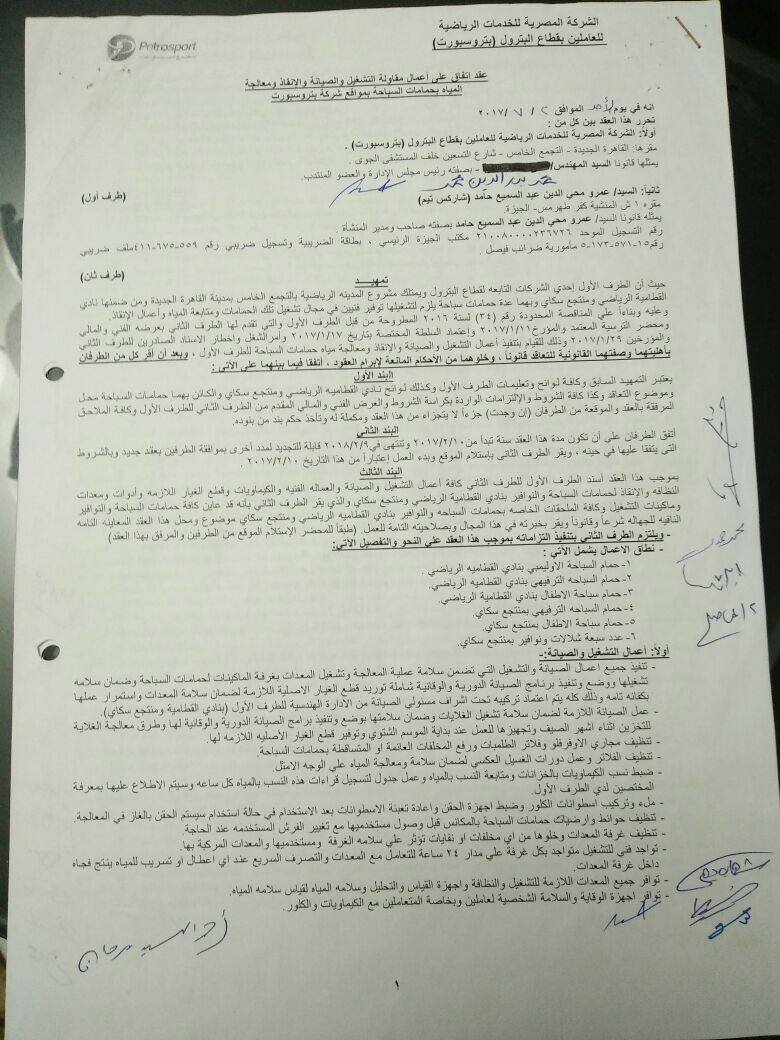 الشركة المصرية للخدمات الرياضية
للعاملين بقطاع البترول (بتروسبورت)
Petrosport
عقد اتفاق على أعمال مقاولة التشغيل والصيانة والانقاذ ومعالجة
المياه بحمامات السباحة بمواقع شركة بتروسبورت
انه في يوم الأحد الموافق ٢ / ٧ / ٢٠١٧
تحرر هذا العقد بين كل من :
أولا: الشركة المصرية للخدمات الرياضية للعاملين بقطاع البترول (بتروسبورت) .
مقرها: القاهرة الجديدة - التجمع الخامس - شارع التسعين خلف المستشفى الجوى .
يمثلها قانونا السيد المهندس/ - بصفته رئيس مجلس الإدارة والعضو المنتدب.
(طرف أول)
ثانياً: السيد/ عمرو محي الدين عبد السميع حامد (شاركس تيم)
مقره ١ ش المنشية كفر طهرمس- الجيزة.
يمثله قانونا السيد/ عمرو محي الدين عبد السميع حامد بصفته صاحب ومدير المنشأة .
رقم التسجيل الموحد ٢١٠٠٨٠٠٠٠٢٣٦٧٢٦ مكتب الجيزة الرئيسي ، بطاقة الضريبية وتسجيل ضريبي رقم ٥٥٩-٦٧٥-٤١١ ملف ضريبي
رقم ١٥-٥٧١-١٧٣-٥ مأمورية ضرائب فيصل .
(طرف ثان)
تمهيد
حيث أن الطرف الأول إحدي الشركات التابعه لقطاع البترول ويمتلك مشروع المدينه الرياضية بالتجمع الخامس بمدينة القاهرة الجديدة ومن ضمنها نادي
القطامية الرياضي ومنتجع سكاي وبهما عدة حمامات سباحة يلزم لتشغيلها توفير فنيين في مجال تشغيل تلك الحمامات ومتابعة المياه وأعمال الإنقاذ.
وعليه وبناءاً علي المناقصة المحدودة رقم (٣٤) لسنة ٢٠١٦ المطروحة من قبل الطرف الأول والتي تقدم لها الطرف الثاني بعرضه الفني والمالي
ومحضر الترسية المعتمد والمؤرخ ٢٠١٧/١/١١ وإعتماد السلطة المختصة بتاريخ ٢٠١٧/١/١٧ وأمر الشغل وإخطار الاسناد الصادرين للطرف الثاني
والمورخين ٢٠١٧/١/٢٩ وذلك للقيام بتنفيذ أعمال التشغيل والصيانة والإنقاذ ومعالجة مياه حمامات السباحة للطرف الأول ، وبعد أن أقر كل من الطرفان
بأهليتهما وصفتهما القانونية للتعاقد قانوناً ، وخلوهما من الأحكام المانعة لإبرام العقود ، أتفقا فيما بينهما على الأتي :
البند الأول
يعتبر التمهيد السابق وكافة لوائح وتعليمات الطرف الأول وكذلك لوائح نادي القطاميه الرياضي ومنتجع سكاي والكائن بهما حمامات السباحة محل
وموضوع التعاقد وكذا كافة الشروط والإلتزامات الواردة بكراسة الشروط والعرض الفني والمالي المقدم من الطرف الثاني للطرف الأول وكافة الملاحق
المرفقة بالعقد والموقعة من الطرفان (إن وجدت) جزءاً لا يتجزاء من هذا العقد ومكملة له وتأخذ حكم بند من بنوده.
البند الثاني
أتفق الطرفان على أن تكون مدة هذا العقد سنة تبدأ من ٢٠١٧/٢/١٠ وتنتهى في ٢٠١٨/٢/٩ قابلة للتجديد لمدد أخرى بموافقة الطرفين بعقد جديد وبالشروط
التى يتفقا عليها في حينه ، ويقر الطرف الثاني بإستلام الموقع وبدء العمل إعتباراً من هذا التاريخ ٢٠١٧/٢/١٠ .
البند الثالث
بموجب هذا العقد أسند الطرف الأول للطرف الثاني كافة أعمال التشغيل والصيانة والعماله الفنيه والكيماويات وقطع الغيار اللازمه وأدوات ومعدات
النظافه والإنقاذ لحمامات السباحة والنوافير بنادي القطامية الرياضي ومنتجع سكاي والذي يقر الطرف الثاني بأنه قد عاين كافة حمامات السباحة والنوافير
وماكينات التشغيل وكافة الملحقات الخاصه بحمامات السباحه والنوافير بنادي القطاميه الرياضي ومنتجع سكاي موضوع ومحل هذا العقد المعاينه التامه
النافيه للجهاله شرعاً وقانوناً ويقر بخبرته في هذا المجال وبصلاحيته التامة للعمل. (طبقاً للمحضر الإستلام الموقع من الطرفين والمرفق بهذا العقد)
- ويلتزم الطرف الثاني بتنفيذ التزاماته بموجب هذا العقد علي النحو والتفصيل الآتي:
- نطاق الاعمال يشمل الآتي :
١- حمام السباحة الاوليمبي بنادي القطاميه الرياضي .
٢- حمام السباحه الترفيهي بنادي القطاميه الرياضي.
٣- حمام سباحة الاطفال بنادي القطامية الرياضي.
٤- حمام السباحه الترفيهي بمنتجع سكاي.
٥- حمام سباحة الاطفال بمنتجع سكاي.
٦- عدد سبعة شلالات ونوافير بمنتجع سكاي.
أولاً: أعمال التشغيل والصيانة:-
- تنفيذ جميع اعمال الصيانة والتشغيل التي تضمن سلامة عملية المعالجة وتشغيل المعدات بغرفة الماكينات لحمامات السباحة وضمان سلامه
تشغيلها ووضع وتنفيذ برنامج الصيانة الدورية والوقائية شاملة توريد قطع الغيار الاصلية اللازمة لضمان سلامة المعدات واستمرار عملها
بكفائه تامه وذلك كله يتم اعتماد تركيبه تحت اشراف مسئولى الصيانة من الادارة الهندسية للطرف الأول (بنادي القطامية ومنتجع سكاي).
- عمل الصيانة اللازمة لضمان سلامة تشغيل الغلايات وضمان سلامتها بوضع وتنفيذ برامج الصيانة الدورية والوقائية لها وطرق معالجة الغلاية
للتخزين اثناء اشهر الصيف وتجهيزها للعمل عند بداية الموسم الشتوي وتوفير قطع الغيار الأصليه اللازمه لها.
- تنظيف مجاري الاوفرفلو وفلاتر الطلمبات ورفع المخلفات العائمة او المتساقطة بحمامات السباحة.
- تنظيف الفلاتر وعمل دورات الغسيل العكسي لضمان سلامة ومعالجة المياه علي الوجه الامثل.
- ضبط نسب الكيماويات بالخزانات ومتابعة النسب بالمياه وعمل جدول لتسجيل قراءات هذه النسب بالمياه كل ساعه وسيتم الاطلاع عليها بمعرفة
المختصين لدي الطرف الأول.
- ملء وتركيب اسطوانات الكلور وضبط اجهزة الحقن واعادة تعبئة الاسطوانات بعد الاستخدام في حالة استخدام سيستم الحقن بالغاز في المعالجة.
- تنظيف حوائط وارضيات حمامات السباحة بالمكانس قبل وصول مستخدميها مع تغيير الفرش المستخدمه عند الحاجة
- تنظيف غرفة المعدات وخلوها من اي مخلفات او نفايات تؤثر علي سلامه الغرفة ومستخدميها والمعدات المركبة بها.
- تواجد فني للتشغيل متواجد بكل غرفة علي مدار ٢٤ ساعة للتعامل مع المعدات والتصرف السريع عند اي اعطال او تسريب للمياه ينتج فجاه
داخل غرفة المعدات.
- توافر جميع المعدات اللازمة للتشغيل والنظافة واجهزة القياس والتحليل وسلامه المياه لقياس سلامه المياه.
- توافر اجهزة الوقاية والسلامة الشخصية لعاملين وبخاصة المتعاملين مع الكيماويات والكلور.
١